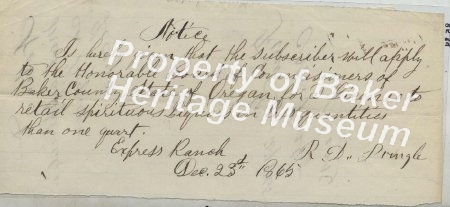 Notice
Is hereby given that the subscriber will apply
to the Honorable County Commissioners of
Baker County State of Oregon for a license to
retail spirituous liquors in quantities
than one quart.
Express Ranch R. D. Pringle
Dec. 23th 1865
Property of Baker
Heritage Museum